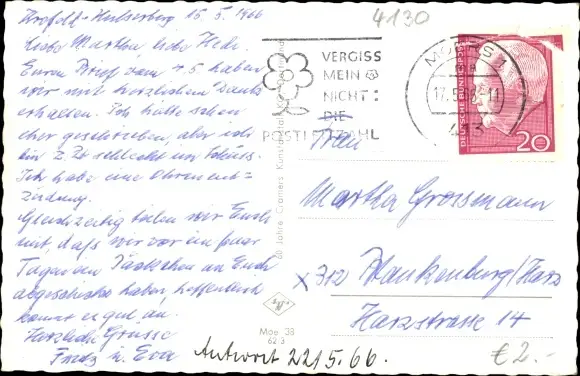 Krefeld-Hülserberg 15.5.1966
Liebe Martha, liebe Hede.
Euren Brief vom 4.5. haben
wir mit herzlichem Dank
erhalten. Ich hätte schon
eher geschrieben, aber ich
bin z. Zt. schlecht im Schuss.
Ich habe eine Ohrenent-
zündung.
Gleichzeitig teilen wir Euch
mit, daß wir vor ein paar
Tagen ein Päckchen an Euch
abgeschickt haben, hoffentlich
kommt es gut an.
Herzliche Grüsse
Fritz u. Eva
4130
VERGISS
MEIN
NICHT:
DIE
POSTLEITZAHL
MOERS 1
17.5.66-11
413
DEUTSCHE BUNDESPOST
20
Frau
Martha Grossmann
x 312 Blankenburg/Harz
Harzstrasse 14
20 Jahre Cramers Kunstanstalt KG, Dortmund
Moe 38
62 3
Antwort 22.5.66.
€ 2.-